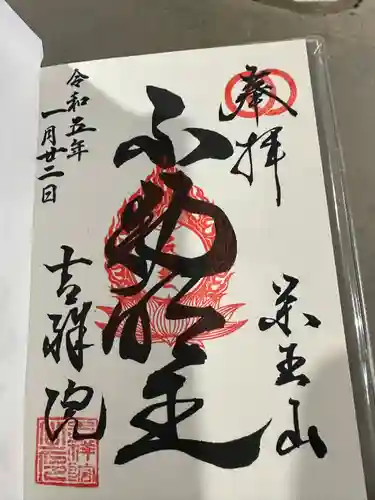 奉拝
薬王山
不動明王
令和五年
一月廿二日
吉祥院